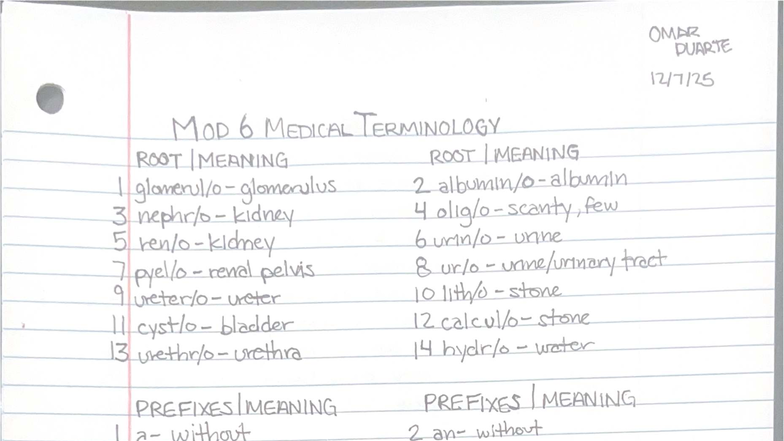 OMAR
DUARTE
12/7/25
MOD 6 MEDICAL TERMINOLOGY
ROOT | MEANING ROOT | MEANING
1 glomerul/o - glomerulus 2 albumin/o - albumin
3 nephr/o - kidney 4 olig/o - scanty, few
5 ren/o - kidney 6 urin/o - urine
7 pyel/o - renal pelvis 8 ur/o - urine/urinary tract
9 ureter/o - ureter 10 lith/o - stone
11 cyst/o - bladder 12 calcul/o - stone
13 urethr/o - urethra 14 hydr/o - water
PREFIXES | MEANING PREFIXES | MEANING
1 a- without 2 an- without